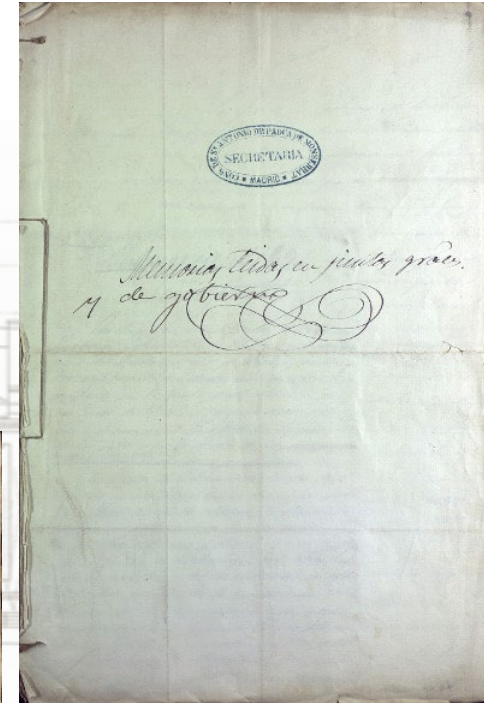 CONG. DE S. ANTONIO DE PADUA DE MONSERRAT
SECRETARIA
★ MADRID ★
Memorias leidas en juntas grales.
y de gobierno